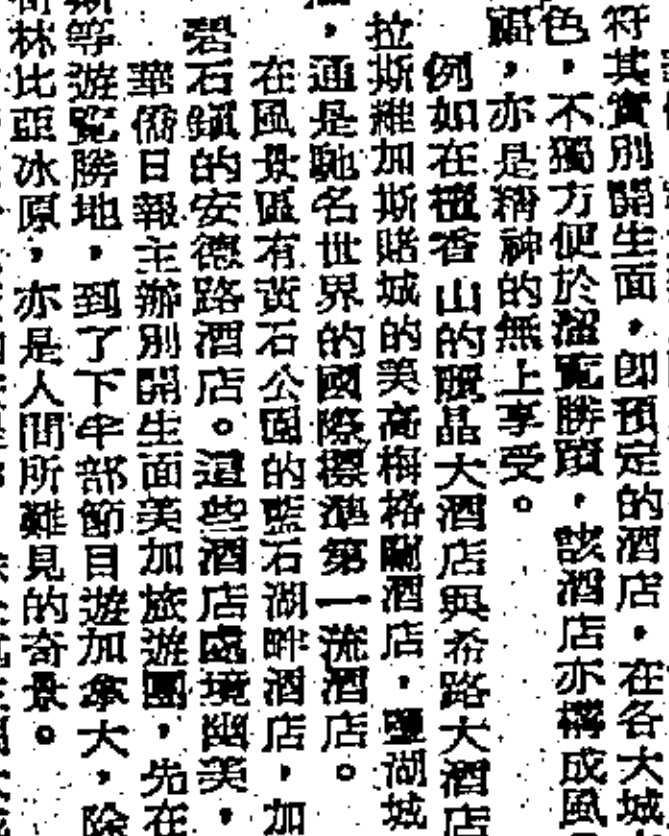 符其實別開生面,即預定的酒店,在各大城
色,不獨方便於溜覽勝蹟,該酒店亦構成風
,亦是精神的無上享受。
例如在檀香山的麗晶大酒店與希路大酒店
拉斯維加斯賭城的美高梅格蘭酒店,鹽湖城
,通是馳名世界的國際標準第一流酒店。
在風景區有黃石公園的藍石湖畔酒店,加
碧石鎮的安德路酒店。這些酒店處境幽美,
華僑日報主辦別開生面美加旅遊團,先在
等遊覽勝地,到了下半部節目遊加拿大,除
林比亞冰原,亦是人間所難見的奇景。